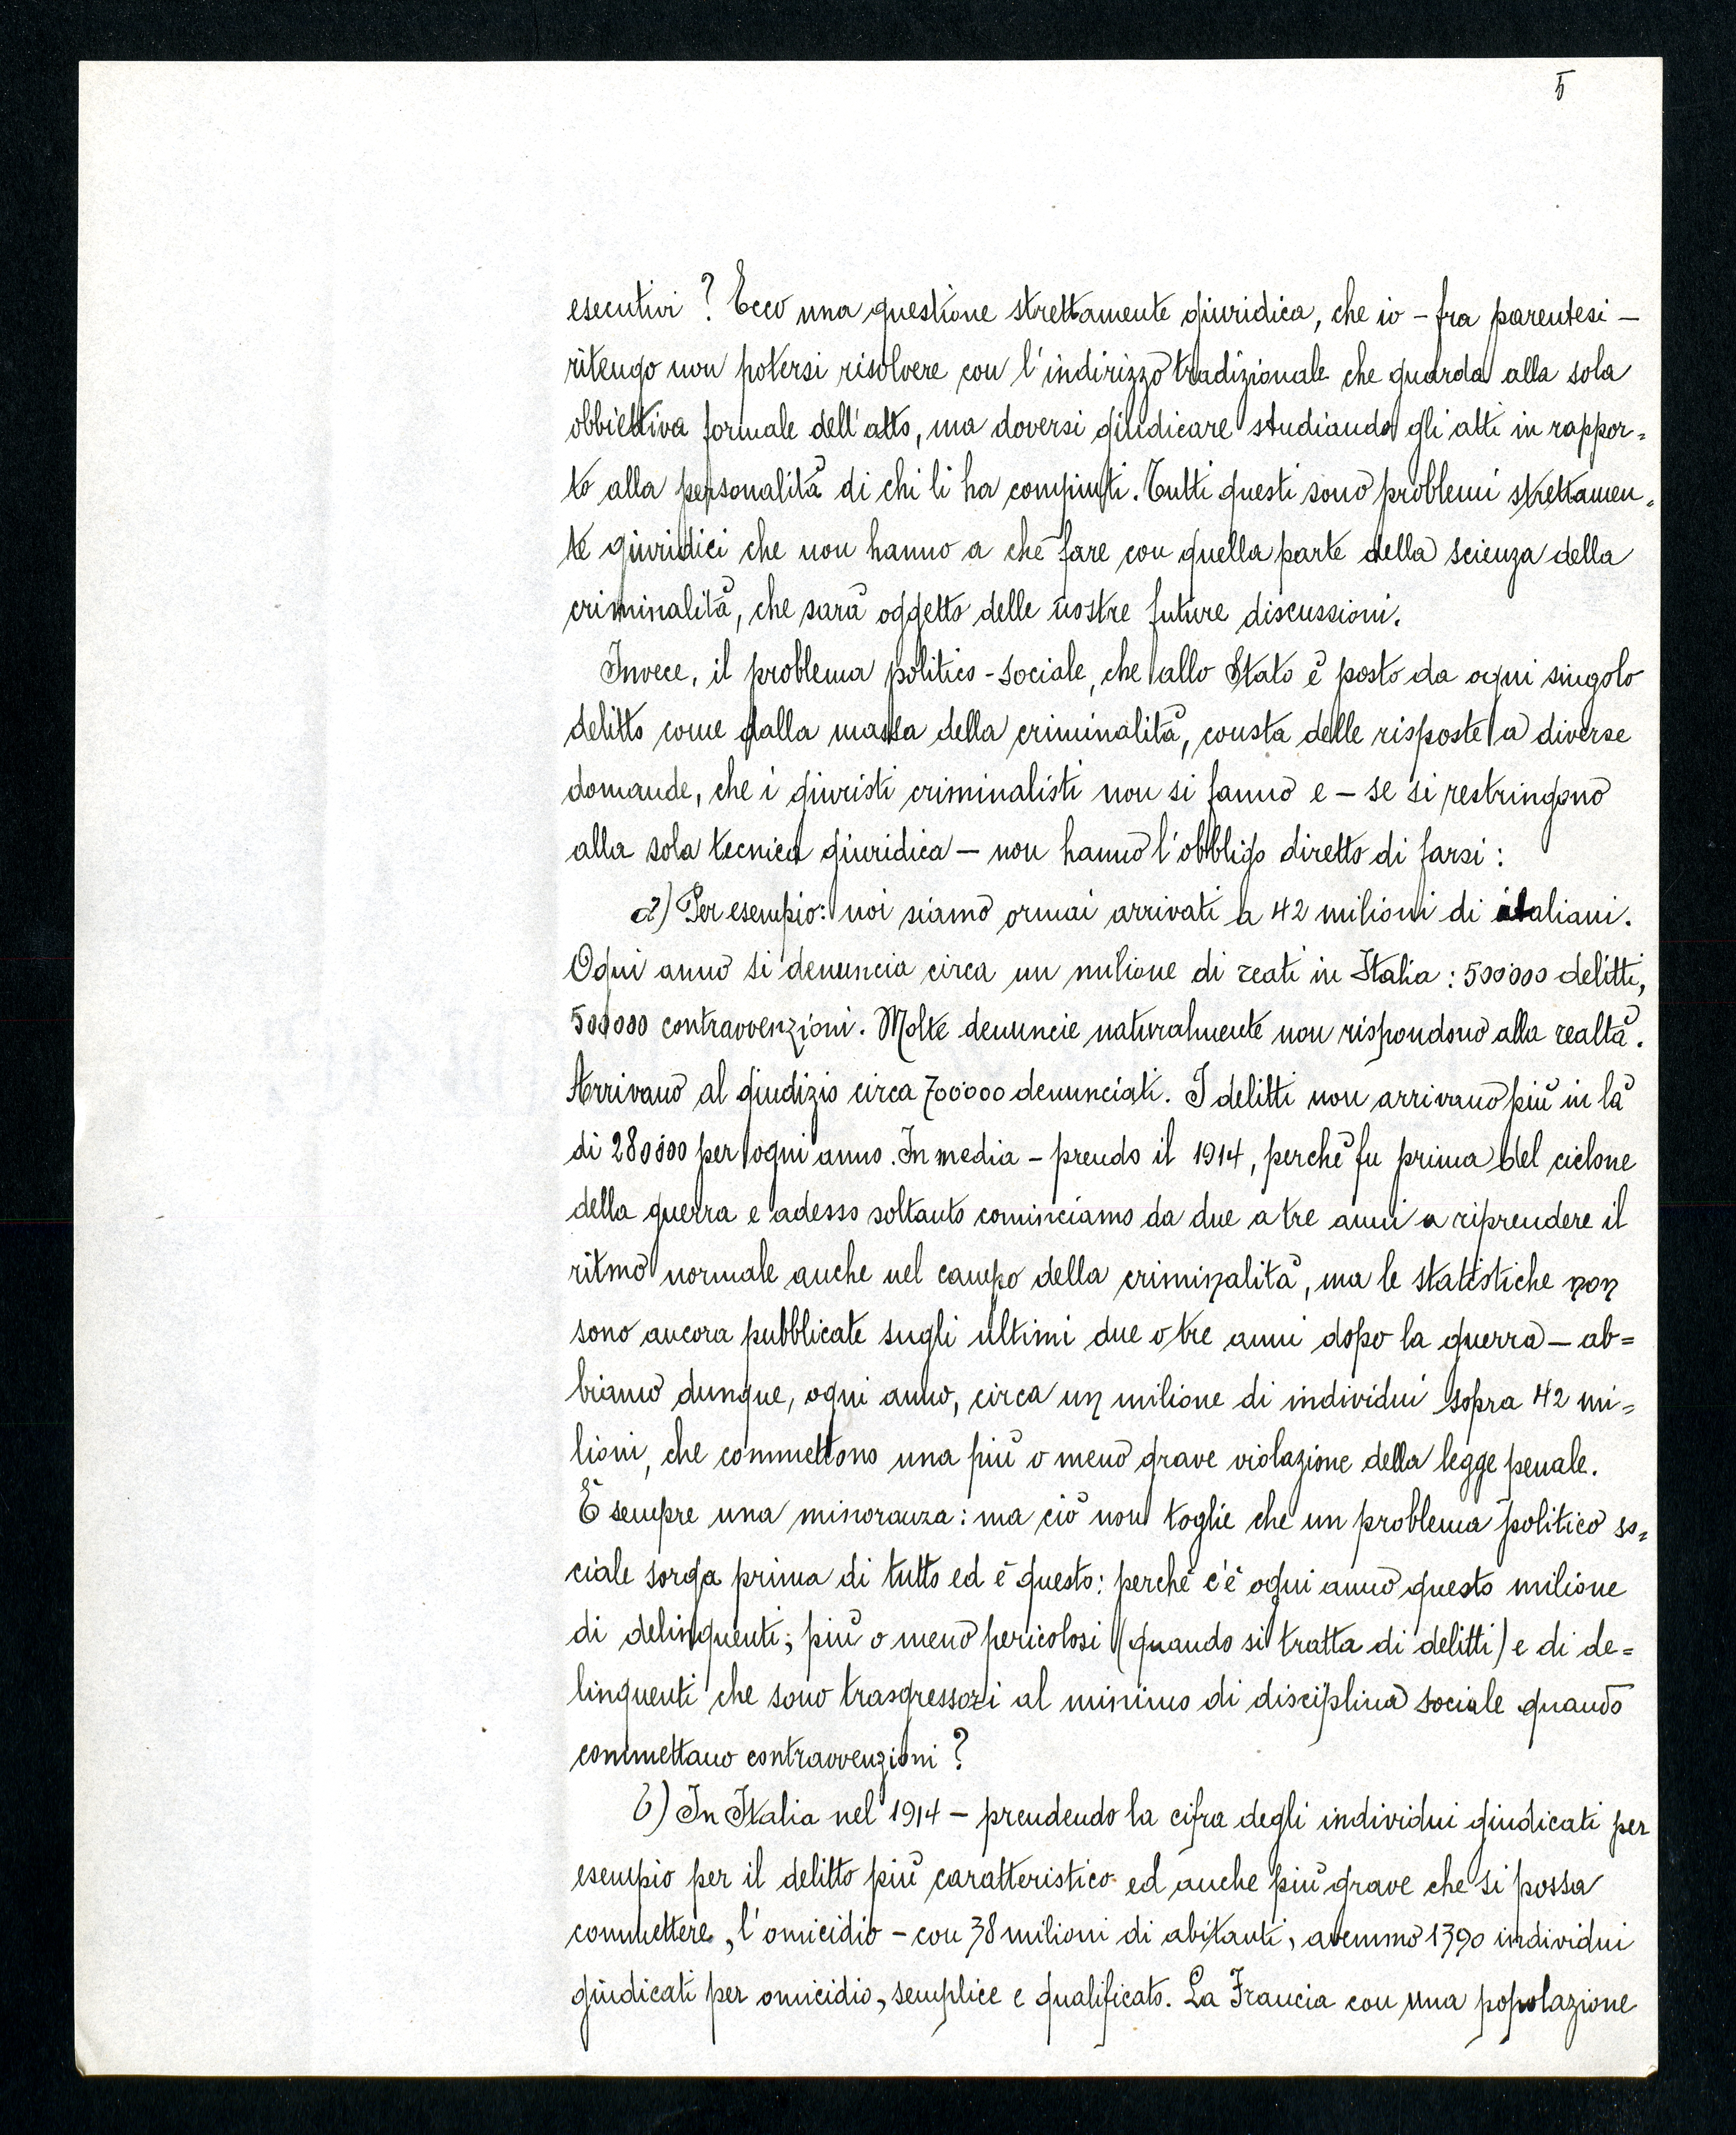 5
esecutivi? Ecco una questione strettamente giuridica, che io - fra parentesi -
ritengo non potersi risolvere con l'indirizzo tradizionale che guarda alla sola
obbiettiva formale dell'atto, ma doversi giudicare studiando gli atti in rappor=
to alla personalità di chi li ha compiuti. Tutti questi sono problemi strettamen=
te giuridici che non hanno a che fare con quella parte della scienza della
criminalità, che sarà oggetto delle nostre future discussioni.
Invece, il problema politico-sociale, che allo Stato è posto da ogni singolo
delitto come dalla massa della criminalità, consta delle risposte a diverse
domande, che i giuristi criminalisti non si fanno e - se si restringono
alla sola tecnica giuridica - non hanno l'obbligo diretto di farsi:
a) Per esempio: noi siamo ormai arrivati a 42 milioni di italiani.
Ogni anno si denuncia circa un milione di reati in Italia: 500000 delitti,
500000 contravvenzioni. Molte denuncie naturalmente non rispondono alla realtà.
Arrivano al giudizio circa 700000 denunciati. I delitti non arrivano più in là
di 280000 per ogni anno. In media - prendo il 1914, perchè fu prima del ciclone
della guerra e adesso soltanto cominciamo da due a tre anni a riprendere il
ritmo normale anche nel campo della criminalità, ma le statistiche non
sono ancora pubblicate sugli ultimi due o tre anni dopo la guerra - ab=
biamo dunque, ogni anno, circa un milione di individui sopra 42 mi=
lioni, che commettono una più o meno grave violazione della legge penale.
È sempre una minoranza: ma ciò non toglie che un problema politico so=
ciale sorga prima di tutto ed è questo: perchè c'è ogni anno questo milione
di delinquenti, più o meno pericolosi (quando si tratta di delitti) e di de=
linquenti che sono trasgressori al minimo di disciplina sociale quando
commettano contravvenzioni?
b) In Italia nel 1914 - prendendo la cifra degli individui giudicati per
esempio per il delitto più caratteristico ed anche più grave che si possa
commettere, l'omicidio - con 38 milioni di abitanti, avemmo 1390 individui
giudicati per omicidio, semplice e qualificato. La Francia con una popolazione